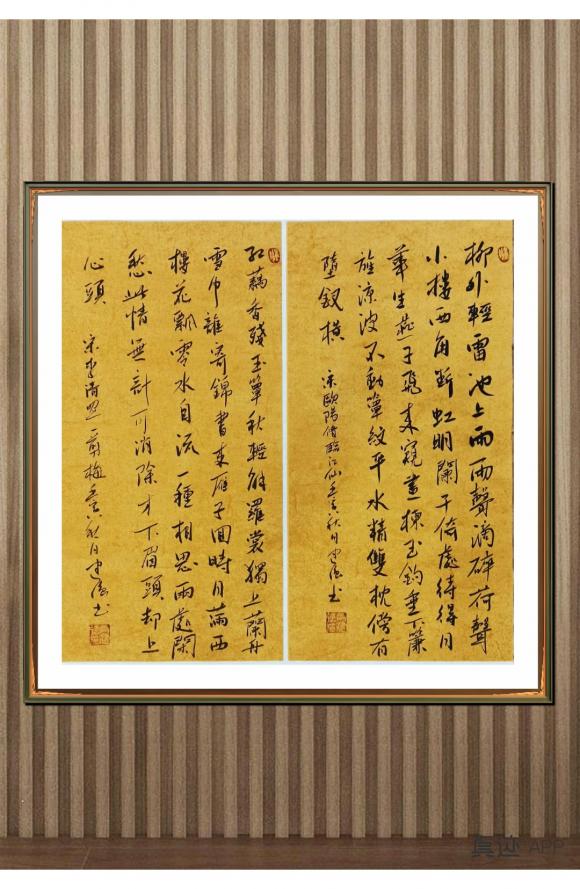 柳外輕雷池上雨雨聲滴碎荷聲
小樓西角斷虹明闌干倚處待得月
華生燕子飛來窺畫棟玉鈎垂下簾
旌涼波不動簟紋平水精雙枕傍有
墮釵橫
宋歐陽修臨江仙壬寅秋月建 書
紅藕香殘玉簟秋輕解羅裳獨上蘭舟
雲中誰寄錦書來雁子回時月滿西
樓花飄零水自流一種相思兩處閑
愁此情無計可消除才下眉頭却上
心頭
宋李清照一剪梅壬寅秋月建 書
真迹 APP